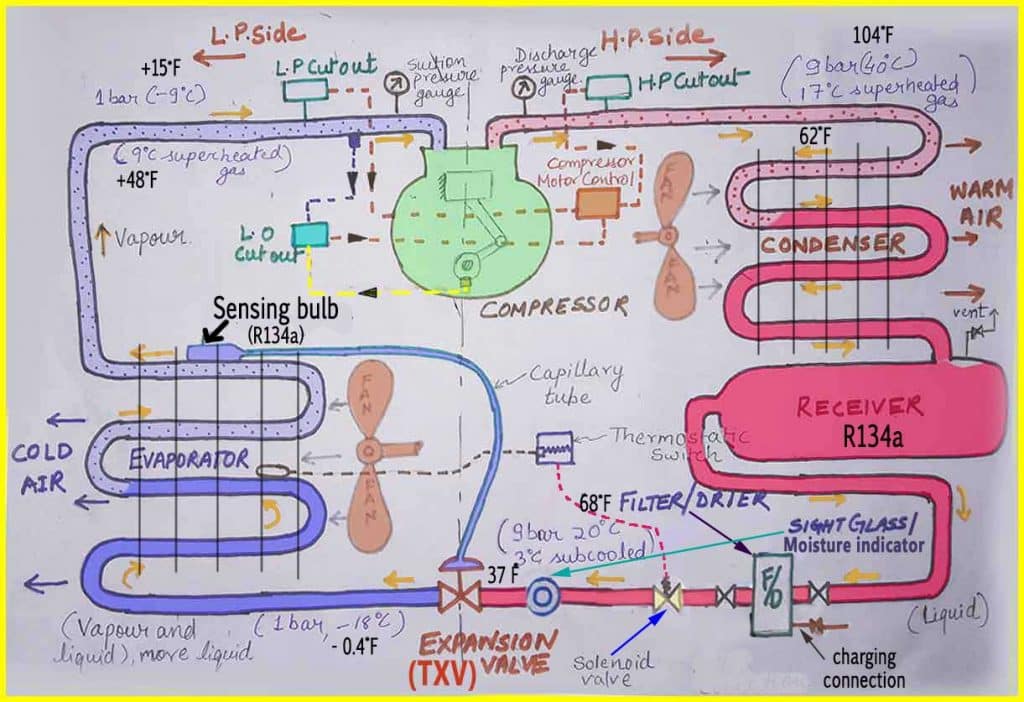 L.P.Side
H.P.Side
104°F
+15°F
L.P Cutout
Suction
pressure
gauge
Discharge
pressure
gauge
H.P Cutout
9bar(40°C)
17°C superheated
gas
1 bar (-9°C)
62°F
(9°C superheated)
gas
+48°F
Compressor
Motor Control
FAN
FAN
WARM
AIR
Vapour
L.O
Cutout
CONDENSER
COMPRESSOR
vent
Sensing bulb
(R134a)
FAN
FAN
Capillary
tube
RECEIVER
R134a
COLD
AIR
EVAPORATOR
Thermostatic
Switch
68°F
FILTER/DRIER
(9bar 20°C
3°C subcooled)
SIGHT GLASS/
Moisture indicator
37 F
F/D
(Liquid)
(Vapour and
liquid), more liquid
(1bar, -18°C)
- 0.4°F
EXPANSION
VALVE
(TXV)
Solenoid
valve
charging
connection